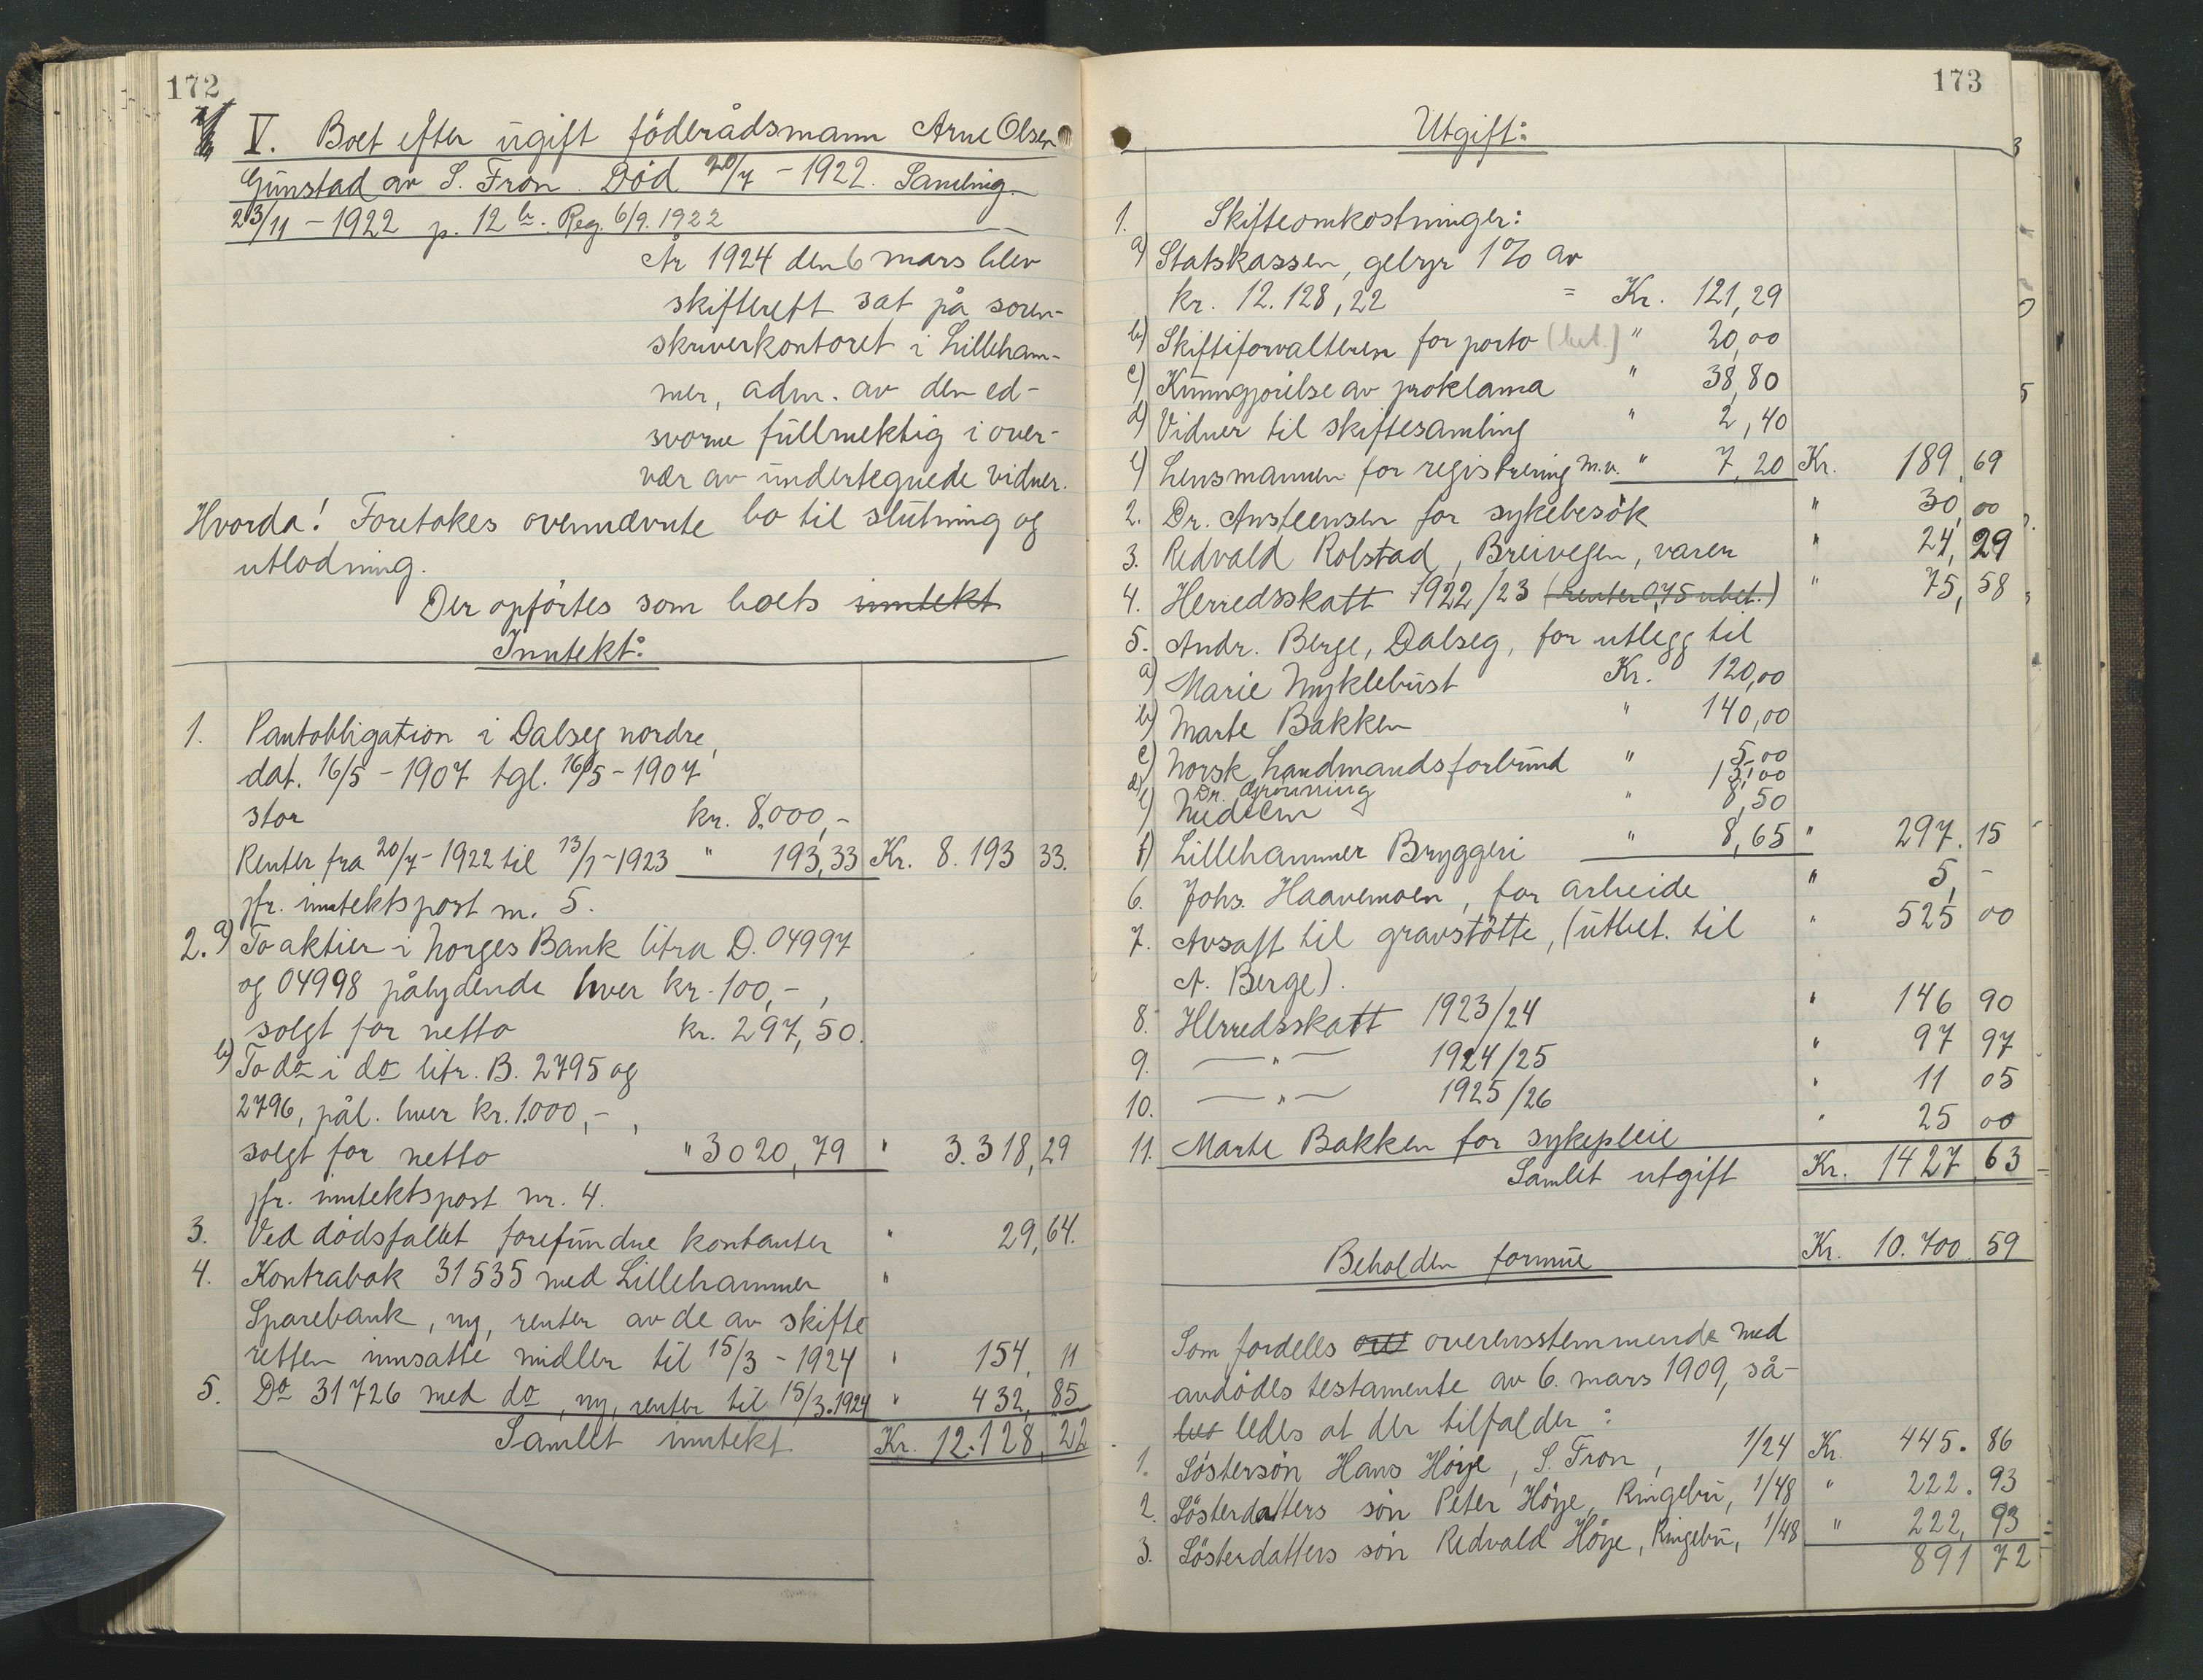 172
V. Boet efter ugift föderådsmann Arne Olsen
Gunstad av S. Fron. Död 20/7 - 1922. Samling
23/11 - 1922 p. 12 b. Reg. 6/9. 1922
År 1924 den 6 mars blev
skifterett sat på soren-
skriverkontoret i Lilleham-
mer, adm. av den ed-
svorne fullmektig i over-
vær av undertegnede vidner.
Hvorda! Foretokes ovennævnte bo til slutning og
utlodning.
Der opförtes som boets inntekt
Inntekt:
1. Pantobligation i Dalseg nordre,
dat. 16/5 - 1907 tgl. 16/5 - 1907
stor kr. 8.000,-
Renter fra 20/7 - 1922 til 13/1 - 1923 " 193,33 Kr. 8.193 33.
jfr. inntektspost nr. 5.
2. a) To aktier i Norges Bank litra D. 04997
og 04998 pålydende hver kr. 100,-,
solgt for netto kr. 297,50.
b) To do i do litr. B. 2795 og
2796, pål. hver kr. 1.000,-,
solgt for netto " 3020,79 " 3.318,29
jfr. inntektspost nr. 4.
3. Ved dödsfallet forefundne kontanter " 29,64.
4. Kontrabok 31535 med Lillehammer "
Sparebank, ny, renter av de av skifte
retten innsatte midler til 15/3 - 1924 " 154, 11
5. Do 31726 med do, ny, renter til 15/3. 1924 " 432, 85
Samlet inntekt Kr. 12.128, 22
173
Utgift:
1. Skifteomkostninger:
a) Statskassen, gebyr 1% av
kr. 12.128,22 = Kr. 121,29
b) Skifteforvalteren for porto (bet.) " 20,00
c) Kunngjörelse av proklama " 38,80
d) Vidner til skiftesamling " 2,40
e) Lensmannen for registrering m.v. " 7,20 Kr. 189,69
2. Dr. Ansteensen for sykebesök " 30,00
3. Redvald Rolstad, Breivegen, varer " 24,29
4. Herredsskatt 1922/23 (renter 0,75 ubet.) " 75,58
5. Andr. Berge, Dalseg, for utlegg til
a) Marie Myklebust Kr. 120,00
b) Marte Bakken " 140,00
c) Norsk Landmandsforbund " 5,00
d) Dr. Grönning 15,00
e) Medicin " 8,50
f) Lillehammer Bryggeri " 8,65 " 297.15
6. Johs. Haavemoen, for arbeide " 5,-
7. Avsatt til gravstötte, (utbet. til " 525 00
A. Berge).
8. Herredsskatt 1923/24 " 146 90
9. — " — 1924/25 " 97 97
10. — " — 1925/26 " 11 05
11. Marte Bakken for sykepleie " 25 00
Samlet utgift Kr. 1427,63
Beholden formue Kr. 10.700.59
Som fordeles overensstemmende med
avdödes testamente av 6. mars 1909, så-
ledes at der tilfalder:
1. Söstersön Hans Höye, S. Fron, 1/24 Kr. 445.86
2. Sösterdatters sön Peter Höye, Ringebu, 1/48 " 222.93
3. Sösterdatters sön Redvald Höye, Ringebu, 1/48 " 222,93
891 72